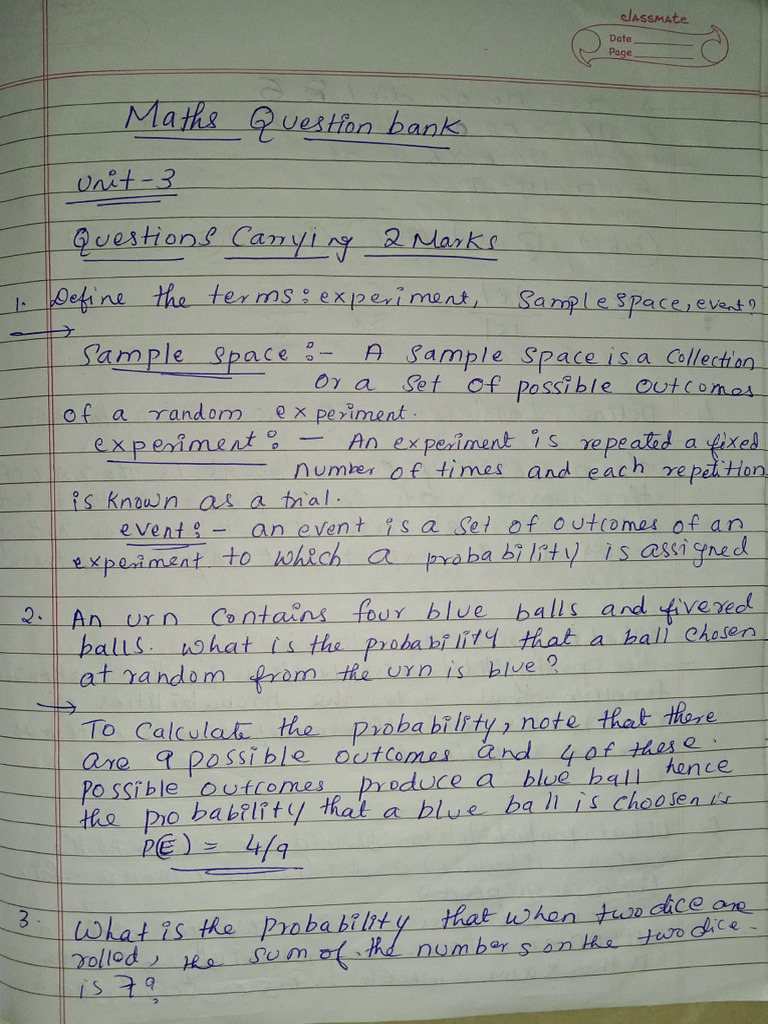 classmate
Date
Page
Maths Question bank
Unit-3
Questions Carrying 2 Marks
1. Define the terms: experiment, Sample space, event?
→ Sample space :- A Sample Space is a Collection
or a set of possible outcomes
of a random experiment.
experiment :- An experiment is repeated a fixed
number of times and each repetition
is known as a trial.
event :- an event is a set of outcomes of an
experiment to which a probability is assigned
2. An urn contains four blue balls and five red
balls. What is the probability that a ball chosen
at random from the urn is blue?
→
To Calculate the probability, note that there
are 9 possible outcomes and 4 of these.
possible outcomes produce a blue ball hence
the probability that a blue ball is choosen is
P(E) = 4/9
3. What is the probability that when two dice are
rolled, the sum of the numbers on the two dice.
is 7?